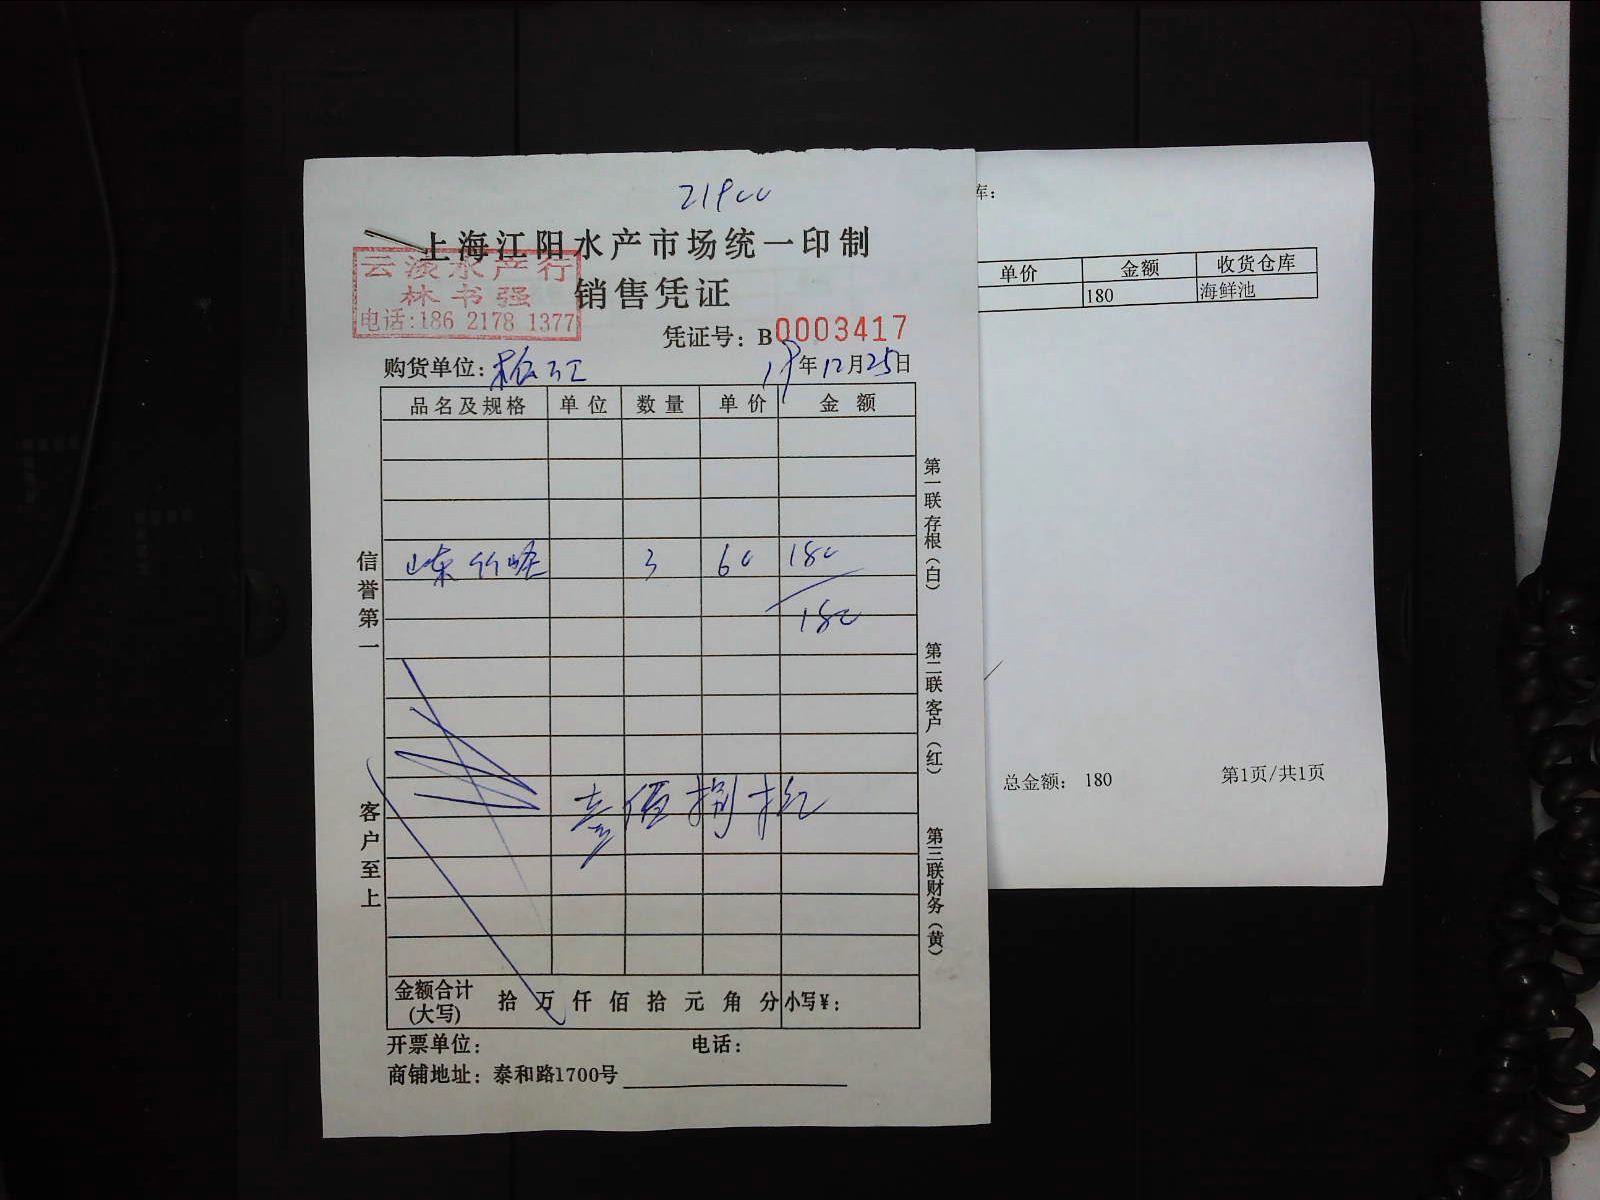 21900
上海江阳水产市场统一印制
云淡水产行
林书强
电话:186 2178 1377
销售凭证
凭证号: B0003417
购货单位: 松江
19年12月25日
品名及规格 单位 数量 单价 金额
山东竹蛏 3 60 180
180
壹佰捌拾
金额合计(大写) 拾 万 仟 佰 拾 元 角 分 小写¥:
开票单位: 电话:
商铺地址: 泰和路1700号
信誉第一
客户至上
第一联存根(白)
第二联客户(红)
第三联财务(黄)
库:
单价 金额 收货仓库
180 海鲜池
总金额: 180 第1页/共1页